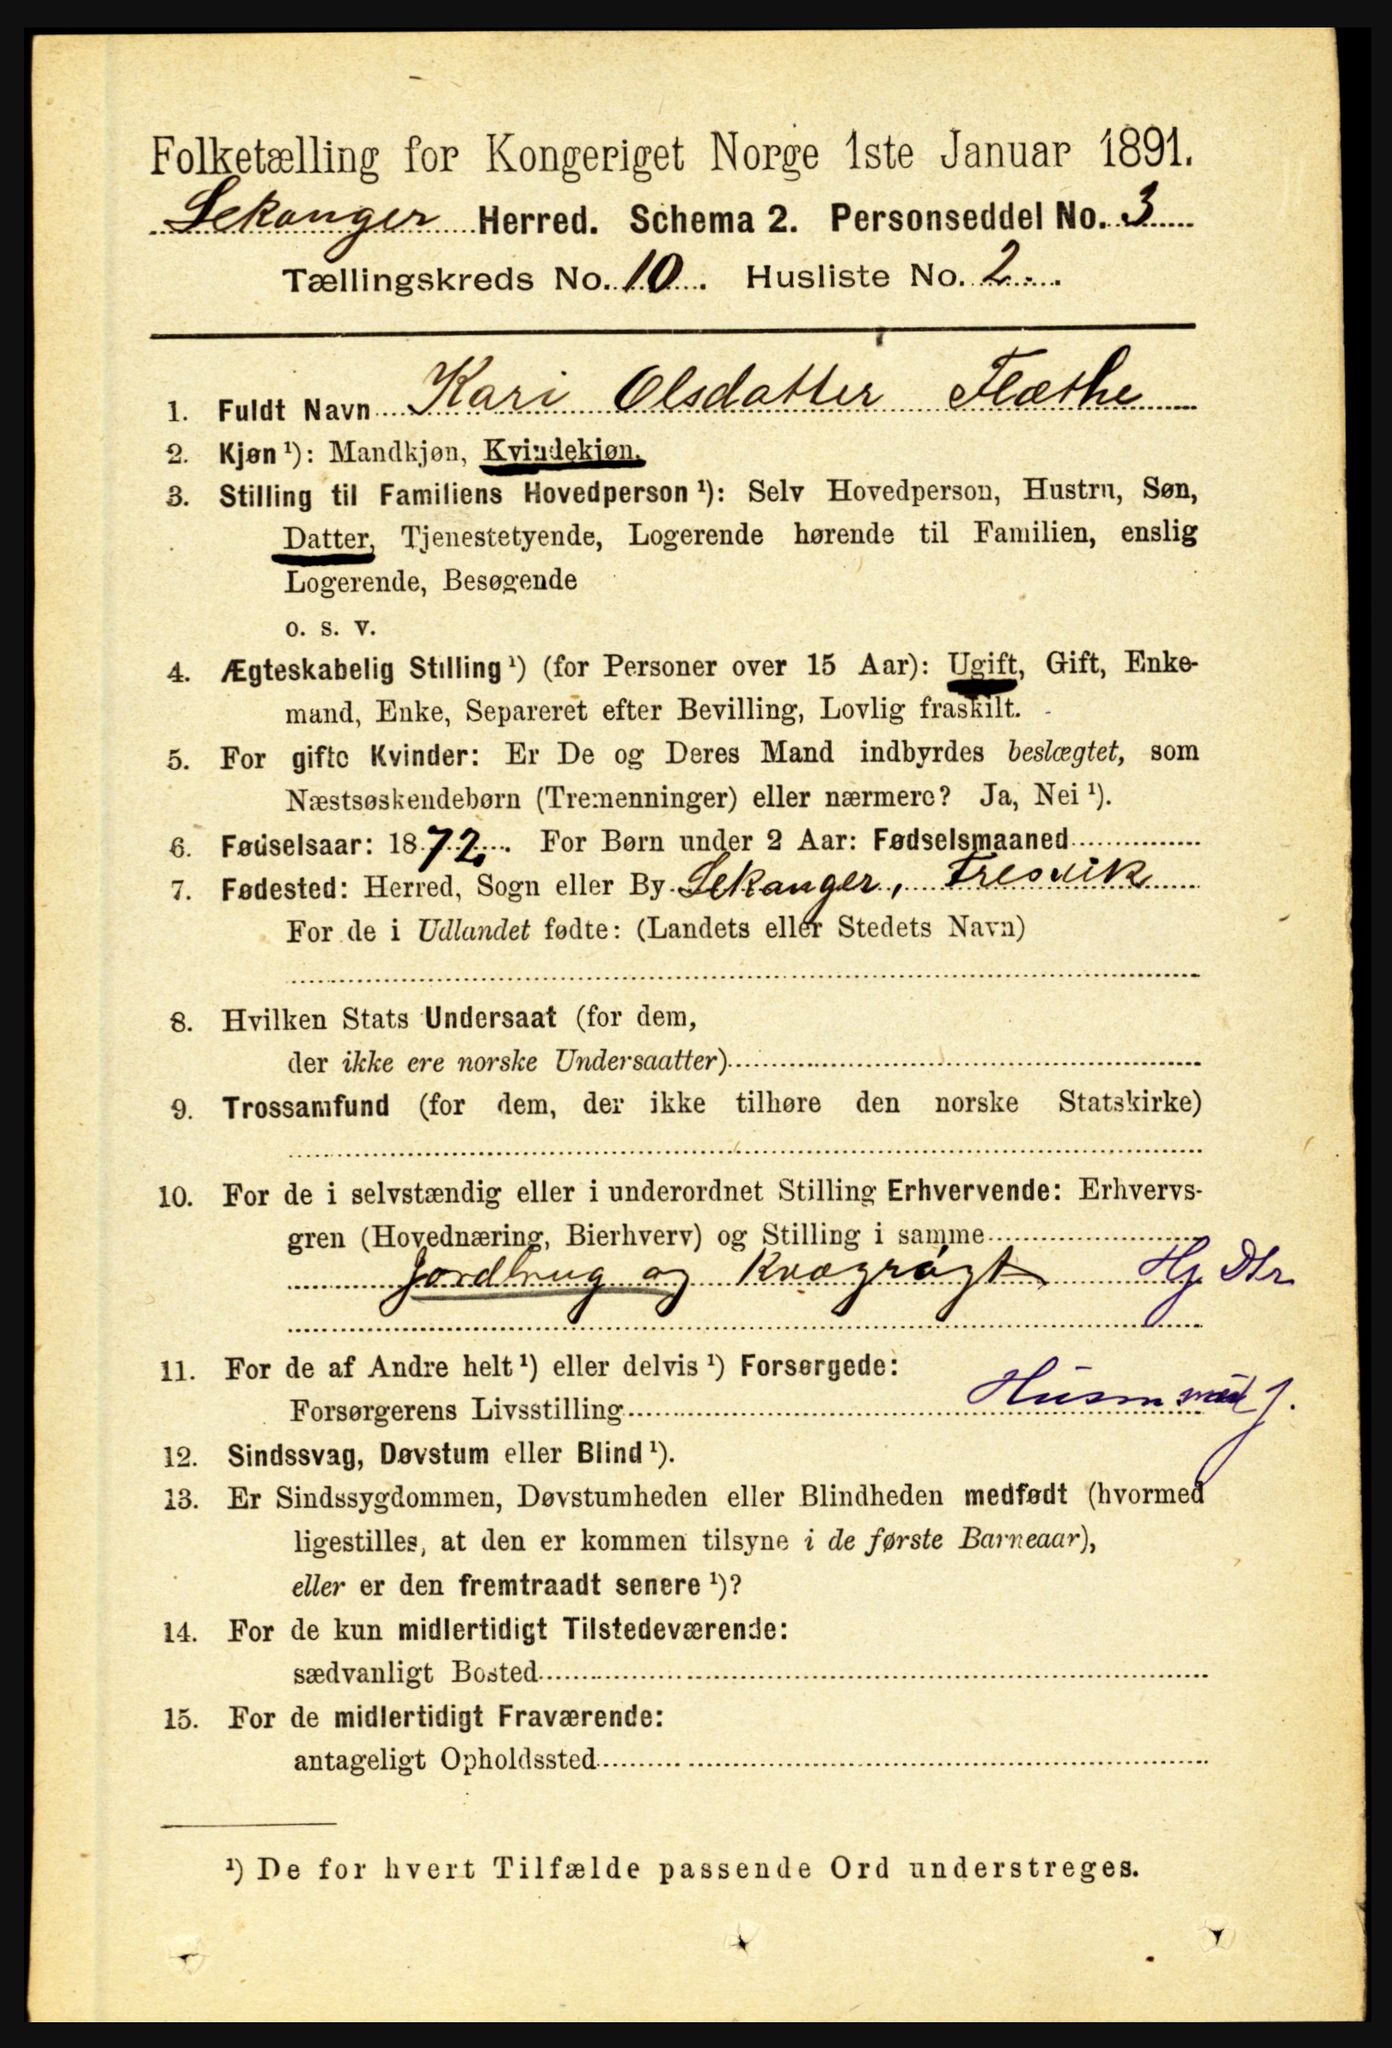 Folketælling for Kongeriget Norge 1ste Januar 1891.
Lekanger Herred. Schema 2. Personseddel No. 3
Tællingskreds No. 10. Husliste No. 2
1. Fuldt Navn Kari Olsdatter Flæthe
2. Kjøn ¹): Mandkjøn, Kvindekjøn.
3. Stilling til Familiens Hovedperson ¹): Selv Hovedperson, Hustru, Søn,
Datter, Tjenestetyende, Logerende hørende til Familien, enslig
Logerende, Besøgende
o. s. v.
4. Ægteskabelig Stilling ¹) (for Personer over 15 Aar): Ugift, Gift, Enke-
mand, Enke, Separeret efter Bevilling, Lovlig fraskilt.
5. For gifte Kvinder: Er De og Deres Mand indbyrdes beslægtet, som
Næstsøskendebørn (Tremenninger) eller nærmere? Ja, Nei ¹).
6. Fødselsaar: 1872. For Børn under 2 Aar: Fødselsmaaned
7. Fødested: Herred, Sogn eller By Lekanger, Fresvik
For de i Udlandet fødte: (Landets eller Stedets Navn)
8. Hvilken Stats Undersaat (for dem,
der ikke ere norske Undersaatter)
9. Trossamfund (for dem, der ikke tilhøre den norske Statskirke)
10. For de i selvstændig eller i underordnet Stilling Erhvervende: Erhvervs-
gren (Hovednæring, Bierhverv) og Stilling i samme
Jordbrug og Kvægrøgt Hj Dtr
11. For de af Andre helt ¹) eller delvis ¹) Forsørgede:
Forsørgerens Livsstilling Husm med J.
12. Sindssvag, Døvstum eller Blind ¹).
13. Er Sindssygdommen, Døvstumheden eller Blindheden medfødt (hvormed
ligestilles, at den er kommen tilsyne i de første Barneaar),
eller er den fremtraadt senere ¹)?
14. For de kun midlertidigt Tilstedeværende:
sædvanligt Bosted
15. For de midlertidigt Fraværende:
antageligt Opholdssted
¹) De for hvert Tilfælde passende Ord understreges.